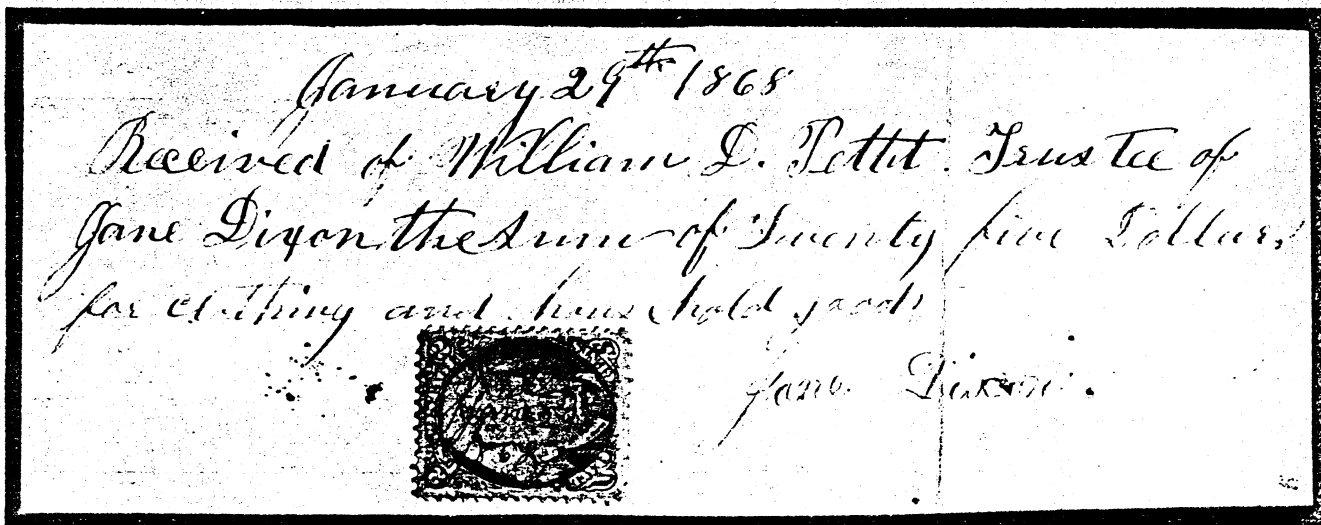 January 29th 1868
Received of William D. Pettit. Trustee of
Jane Dixon the sum of Twenty five Dollars
for Clothing and household goods
Jane Dixon.